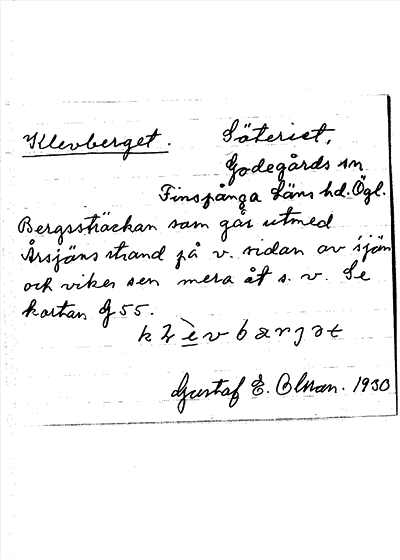 Klevberget.
Säteriet,
Godegårds sn
Finspånga Läns hd. Ögl.
Bergssträckan som går utmed
Årsjöns strand på v. sidan av sjön
och viker sen mera åt s. v. Se
kartan G 55.
Gustaf E. Olsson. 1930